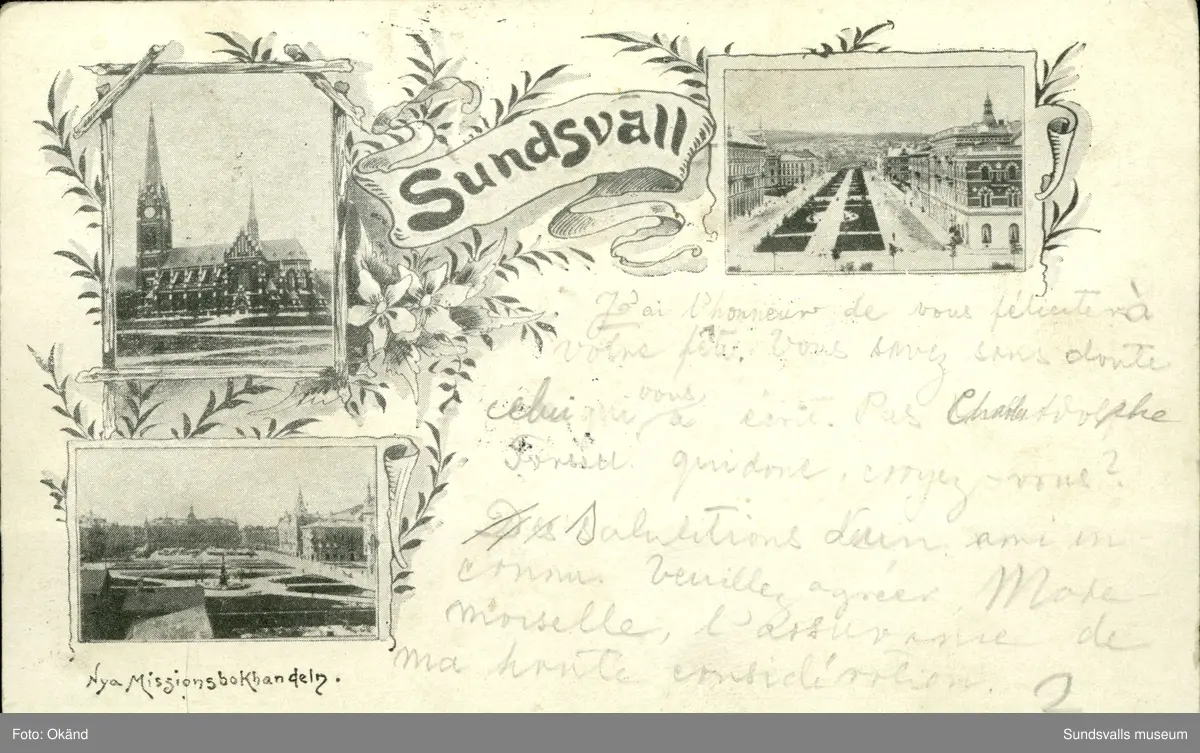 Sundsvall
J'ai l'honneur de vous féliciter à
votre fête. Vous savez sans doute
celui qui vous a écrit. Pas Adolphe
qui donc, croyez-vous?
Des Salutitions d'un ami in-
connu. Veuillez agréer Made-
moiselle, l'assurance de
ma haute considération.
?
Nya Missionsbokhandeln.
Foto: Okänd
Sundsvalls museum